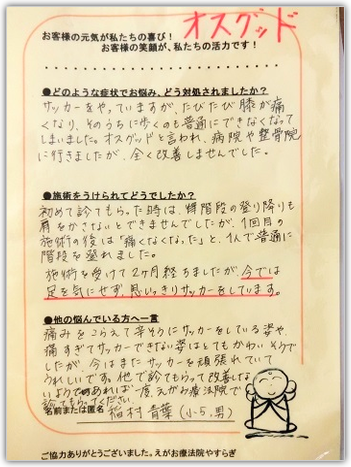 お客様の元気が私たちの喜び！
お客様の笑顔が、私たちの活力です！
オスグッド
●どのような症状でお悩み、どう対処されましたか？
サッカーをやっていますが、たびたび膝が痛
くなり、そのうちに歩くのも普通にできなくなって
しまいました。オスグッドと言われ、病院や整骨院
に行きましたが、全く改善しませんでした。
●施術をうけられてどうでしたか？
初めて診てもらった時は、階段の登り降りも
肩をかさないとできませんでしたが、1回目の
施術の後は「痛くなくなった」と、1人で普通に
階段を登れました。
施術を受けて2ヶ月経ちましたが、今では
足を気にせず、思いっきりサッカーをしています。
●他の悩んでいる方へ一言
痛みをこらえて辛そうにサッカーをしている姿や、
痛すぎてサッカーできない姿はとてもかわいそうで
したが、今はまたサッカーを頑張れていて
うれしいです。他で診てもらって改善しな
いようであれば一度、えがお療法院で
診てもらってください。
名前または匿名 稲村 青葉 (小5、男)
ご協力ありがとうございました。えがお療法院やすらぎ